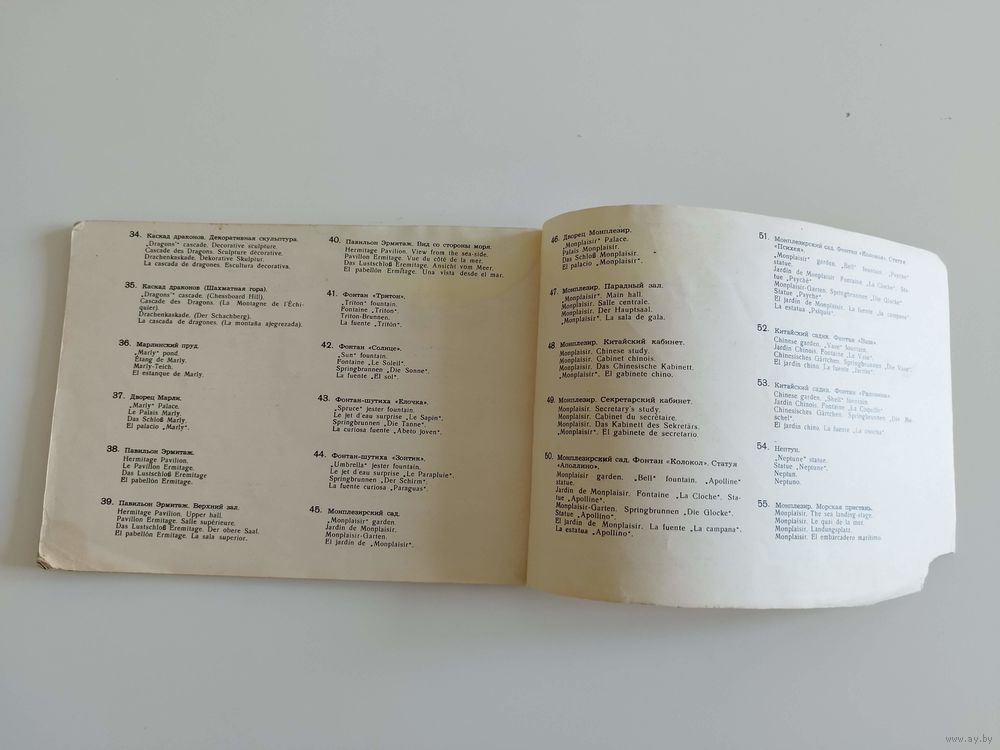 34. Каскад драконов. Декоративная скульптура.
„Dragons'“ cascade. Decorative sculpture.
Cascade des Dragons. Sculpture décorative.
Drachenkaskade. Dekorative Skulptur.
La cascada de dragones. Escultura decorativa.
35. Каскад драконов (Шахматная гора).
„Dragons'“ cascade. (Chessboard Hill).
Cascade des Dragons. (La Montagne de l'Échi-
quier).
Drachenkaskade. (Der Schachberg).
La cascada de dragones. (La montaña ajegrezada).
36. Марлинский пруд.
„Marly“ pond.
Étang de Marly.
Marly-Teich.
El estanque de Marly.
37. Дворец Марли.
„Marly“ Palace.
Le Palais Marly.
Das Schloß Marly.
El palacio „Marly“.
38. Павильон Эрмитаж.
Hermitage Pavilion.
Le Pavillon Ermitage.
Das Lustschloß Eremitage
El pabellón Ermitage.
39. Павильон Эрмитаж. Верхний зал.
Hermitage Pavilion. Upper hall.
Pavillon Ermitage. Salle supérieure.
Das Lustschloß Eremitage. Der obere Saal.
El pabellón Ermitage. La sala superior.
40. Павильон Эрмитаж. Вид со стороны моря.
Hermitage Pavilion. View from the sea-side.
Pavillon Ermitage. Vue du côté de la mer.
Das Lustschloß Eremitage. Ansicht vom Meer.
El pabellón Ermitage. Una vista desde el mar.
41. Фонтан «Тритон».
„Triton“ fountain.
Fontaine „Triton“.
Triton-Brunnen.
La fuente „Tritón“.
42. Фонтан «Солнце».
„Sun“ fountain.
Fontaine „Le Soleil“.
Springbrunnen „Die Sonne“.
La fuente „El sol“.
43. Фонтан-шутиха «Елочка».
„Spruce“ jester fountain.
Le jet d'eau surprise „Le Sapin“.
Springbrunnen „Die Tanne“.
La curiosa fuente „Abeto joven“.
44. Фонтан-шутиха «Зонтик».
„Umbrella“ jester fountain.
Le jet d'eau surprise „Le Parapluie“.
Springbrunnen „Der Schirm“.
La fuente curiosa „Paraguas“.
45. Монплезирский сад.
„Monplaisir“ garden.
Jardin de Monplaisir.
Monplaisir-Garten.
El jardin de „Monplaisir“.
46. Дворец Монплезир.
„Monplaisir“ Palace.
Palais Monplaisir.
Das Schloß Monplaisir.
El palacio „Monplaisir“.
47. Монплезир. Парадный зал.
„Monplaisir“. Main hall.
Monplaisir. Salle centrale.
Monplaisir. Der Hauptsaal.
„Monplaisir“. La sala de gala.
48. Монплезир. Китайский кабинет.
Monplaisir. Chinese study.
Monplaisir. Cabinet chinois.
Monplaisir. Das Chinesische Kabinett.
„Monplaisir“. El gabinete chino.
49. Монплезир. Секретарский кабинет.
Monplaisir. Secretary's study.
Monplaisir. Cabinet du secrétaire.
Monplaisir. Das Kabinett des Sekretärs.
„Monplaisir“. El gabinete de secretario.
50. Монплезирский сад. Фонтан «Колокол». Статуя
«Аполлино».
Monplaisir garden. „Bell“ fountain. „Apolline“
statue.
Jardin de Monplaisir. Fontaine „La Cloche“. Sta-
tue „Apolline“.
Monplaisir-Garten. Springbrunnen „Die Glocke“.
Statue „Apollino“.
El jardin de Monplaisir. La fuente „La campana“.
La estatua „Apollino“.
51. Монплезирский сад. Фонтан «Колокол». Статуя
«Психея».
„Monplaisir“ garden. „Bell“ fountain. „Psyche“
statue.
Jardin de Monplaisir. Fontaine „La Cloche“. Sta-
tue „Psyché“
Monplaisir-Garten. Springbrunnen „Die Glocke“
Statue „Psyche“.
El jardin de Monplaisir. La fuente „la campana“
La estatua „Psiquis“.
52. Китайский садик. Фонтан «Ваза».
Chinese garden. „Vase“ fountain.
Jardin Chinois. Fontaine „Le Vase“.
Chinesisches Gärtchen. Springbrunnen „Die Vase“.
El jardin chino. La fuente
53. Китайский садик. Фонтан «Раковина».
Chinese garden. „Shell“ fountain.
Jardin Chinois. Fontaine „La Coquille“
Chinesisches Gärtchen. Springbrunnen „Die Mu-
schel“
El jardin chino. La fuente „La concha“
54. Нептун.
„Neptune“ statue.
Statue „Neptune“.
Neptun.
Neptuno.
55. Монплезир. Морская пристань.
Monplaisir. The sea landing-stage.
Monplaisir. Le quai de la mer.
Monplaisir. Landungsplatz.
Monplaisir. El embarcadero maritimo.
www.ay.by